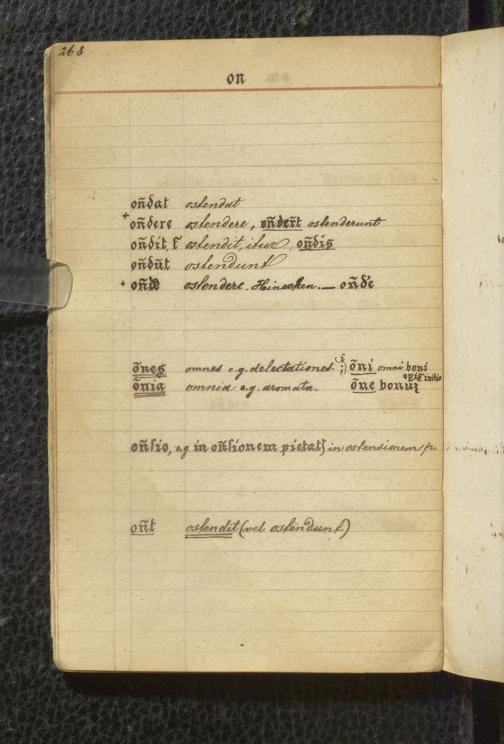 268
on
oñdat ostendat
+ oñdere ostendere, oñder̃t ostenderunt
oñdit, ostendit, itur, oñdis
oñdũt ostendunt
+ ostendere. Hinecken. — oñde
õnes omnes e.g. delectationes. õni omni boni
õnia omnia e.g. aromata. õne bonuʒ
initio
oñsio, e.g. in oñsionem pietat in ostensionem
oñt ostendit (vel ostendunt)